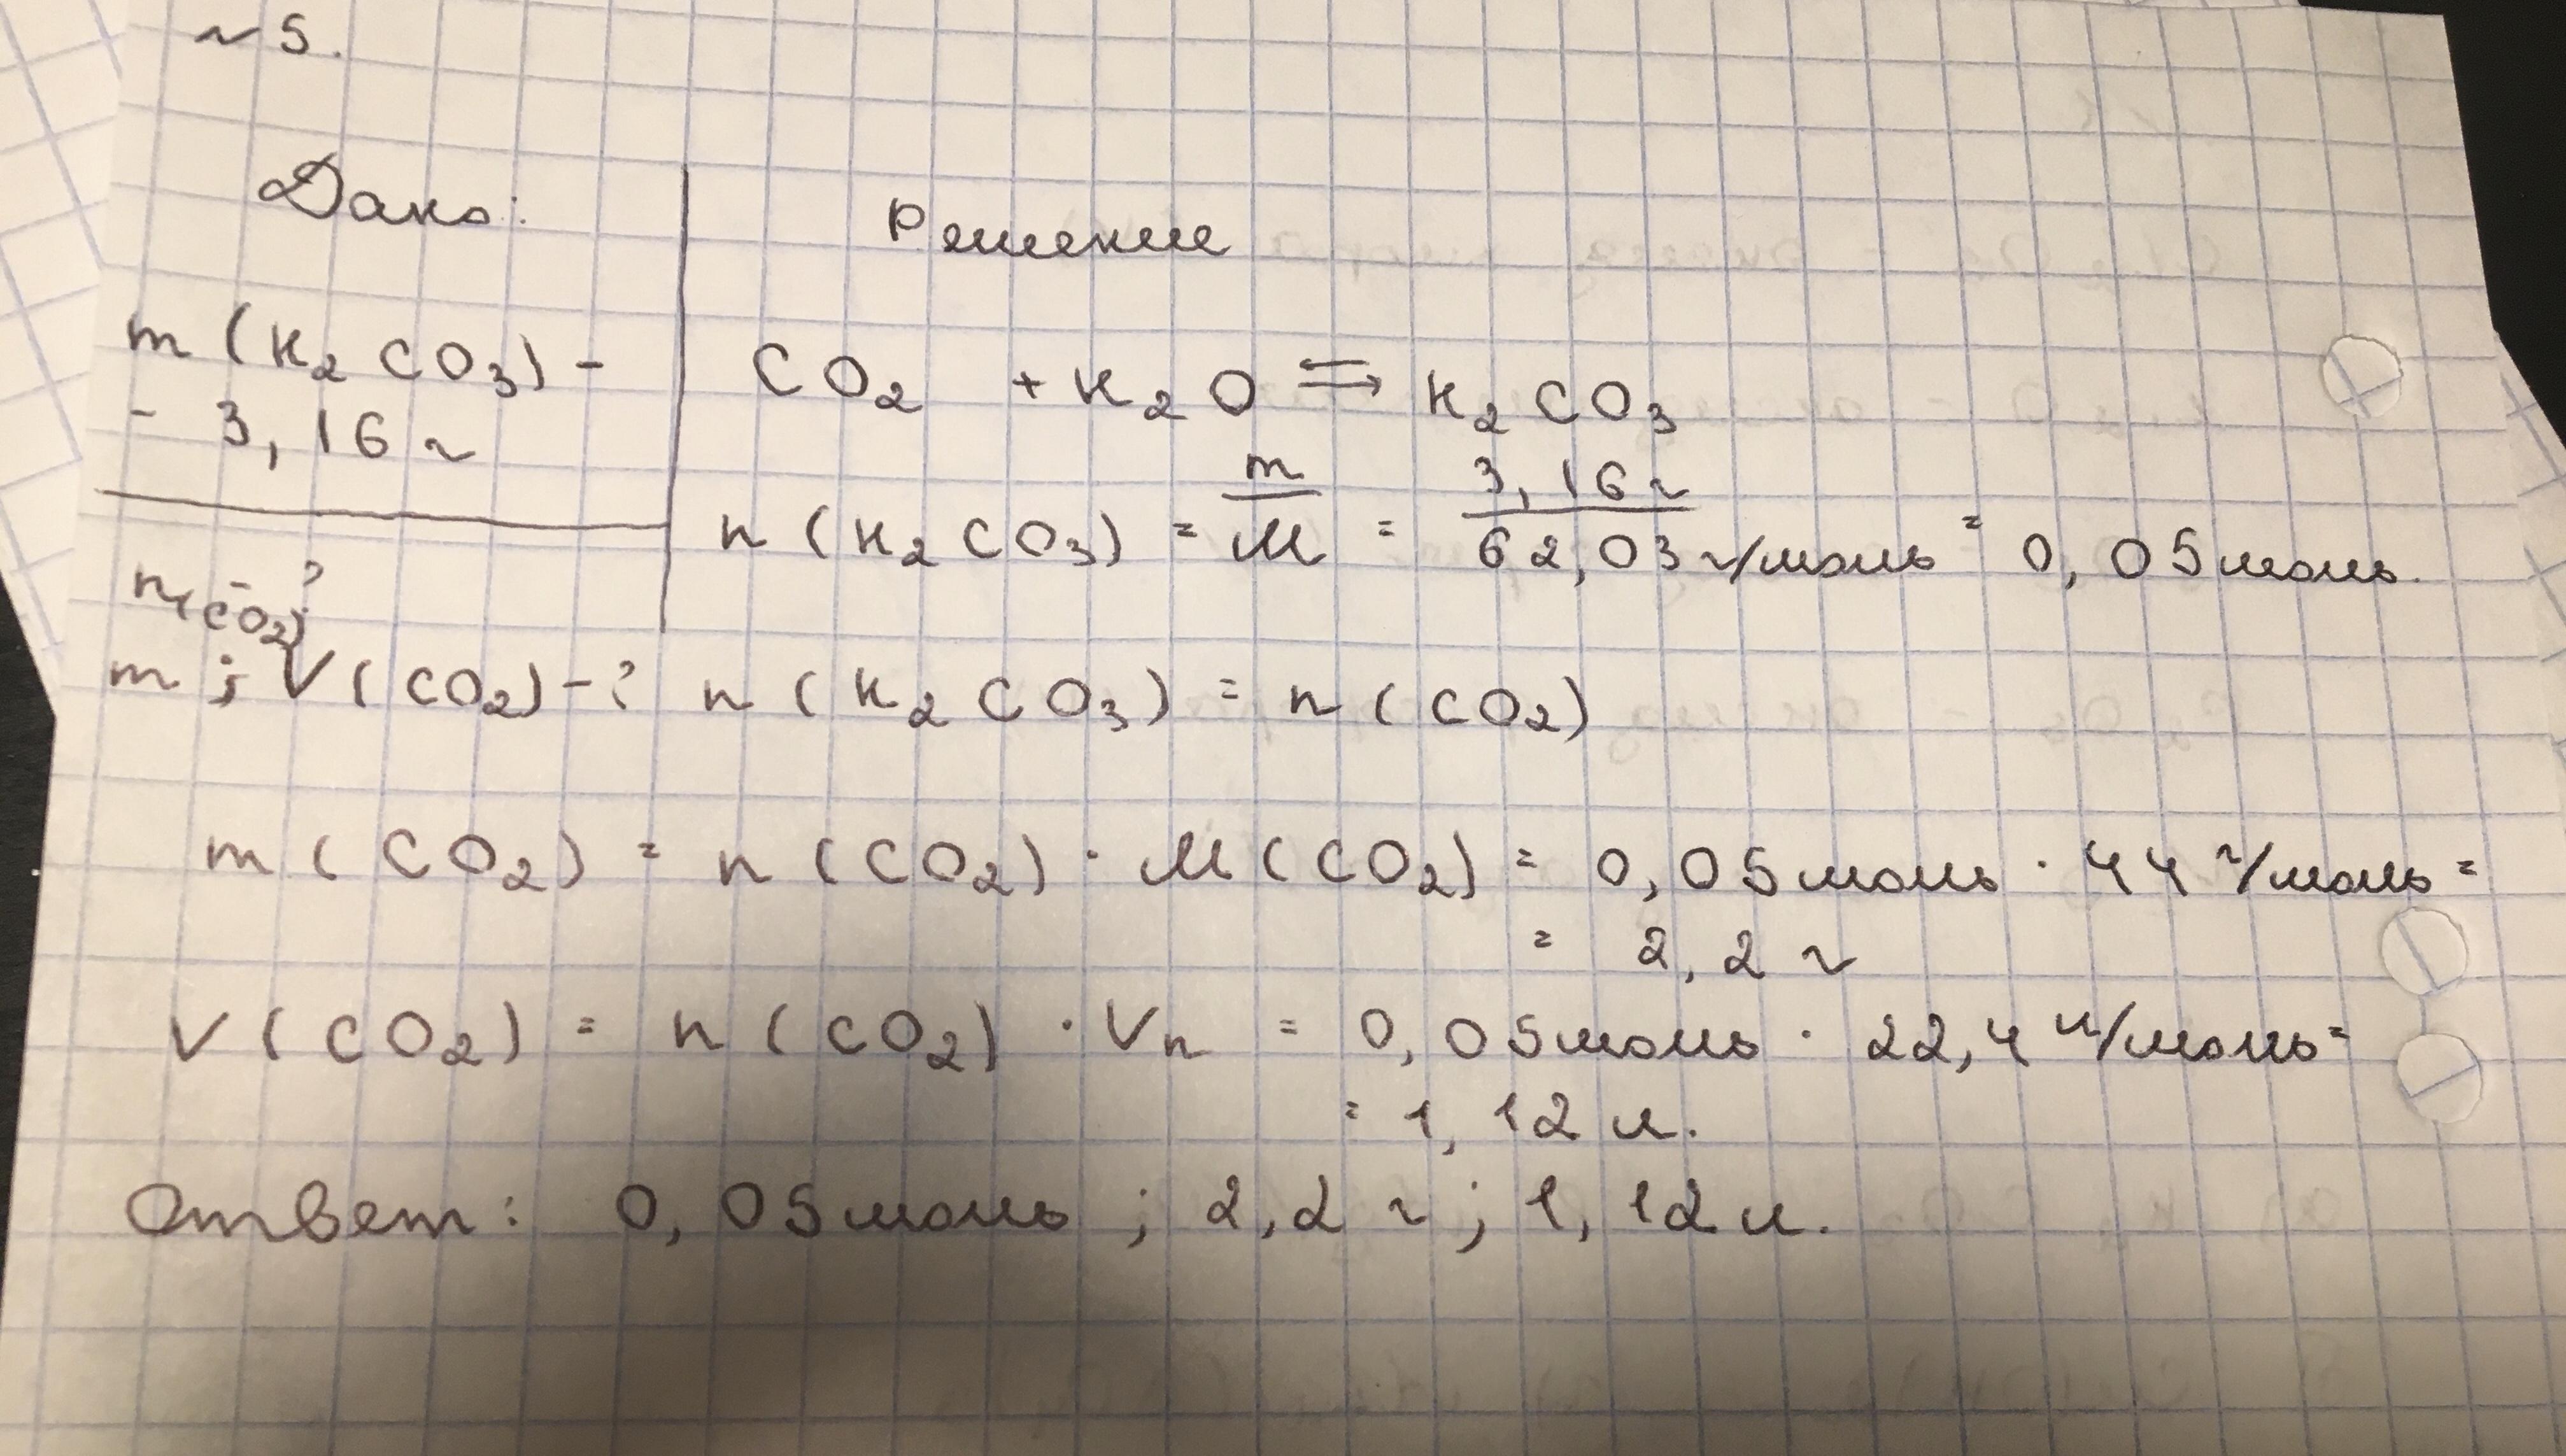 ~ 5.
Дано:
m (K₂CO₃) -
- 3,16 г
n(CO₂) - ?
m ; V (CO₂) - ?
Решение
CO₂ + K₂O ⇆ K₂CO₃
n (K₂CO₃) = m/M = 3,16 г/62,03 г/моль = 0,05 моль.
n (K₂CO₃) = n (CO₂)
m (CO₂) = n (CO₂) · M (CO₂) = 0,05 моль · 44 г/моль =
= 2,2 г
V (CO₂) = n (CO₂) · Vn = 0,05 моль · 22,4 л/моль =
= 1,12 л.
Ответ: 0,05 моль ; 2,2 г ; 1,12 л.